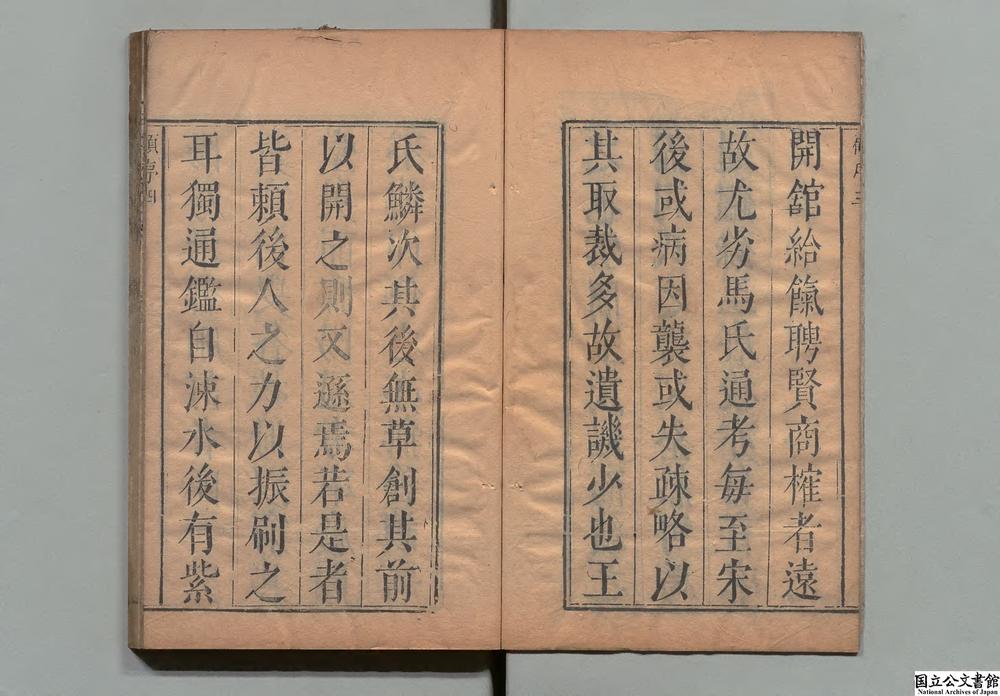 開舘給餼聘賢商榷者遠
故尤劣馬氏通考每至宋
後或病因襲或失疎略以
其取裁多故遺譏少也王
氏鱗次其後無草創其前
以開之則又遜焉若是者
皆賴後人之力以振刷之
耳獨通鑑自涑水後有紫
國立公文書館
National Archives of Japan